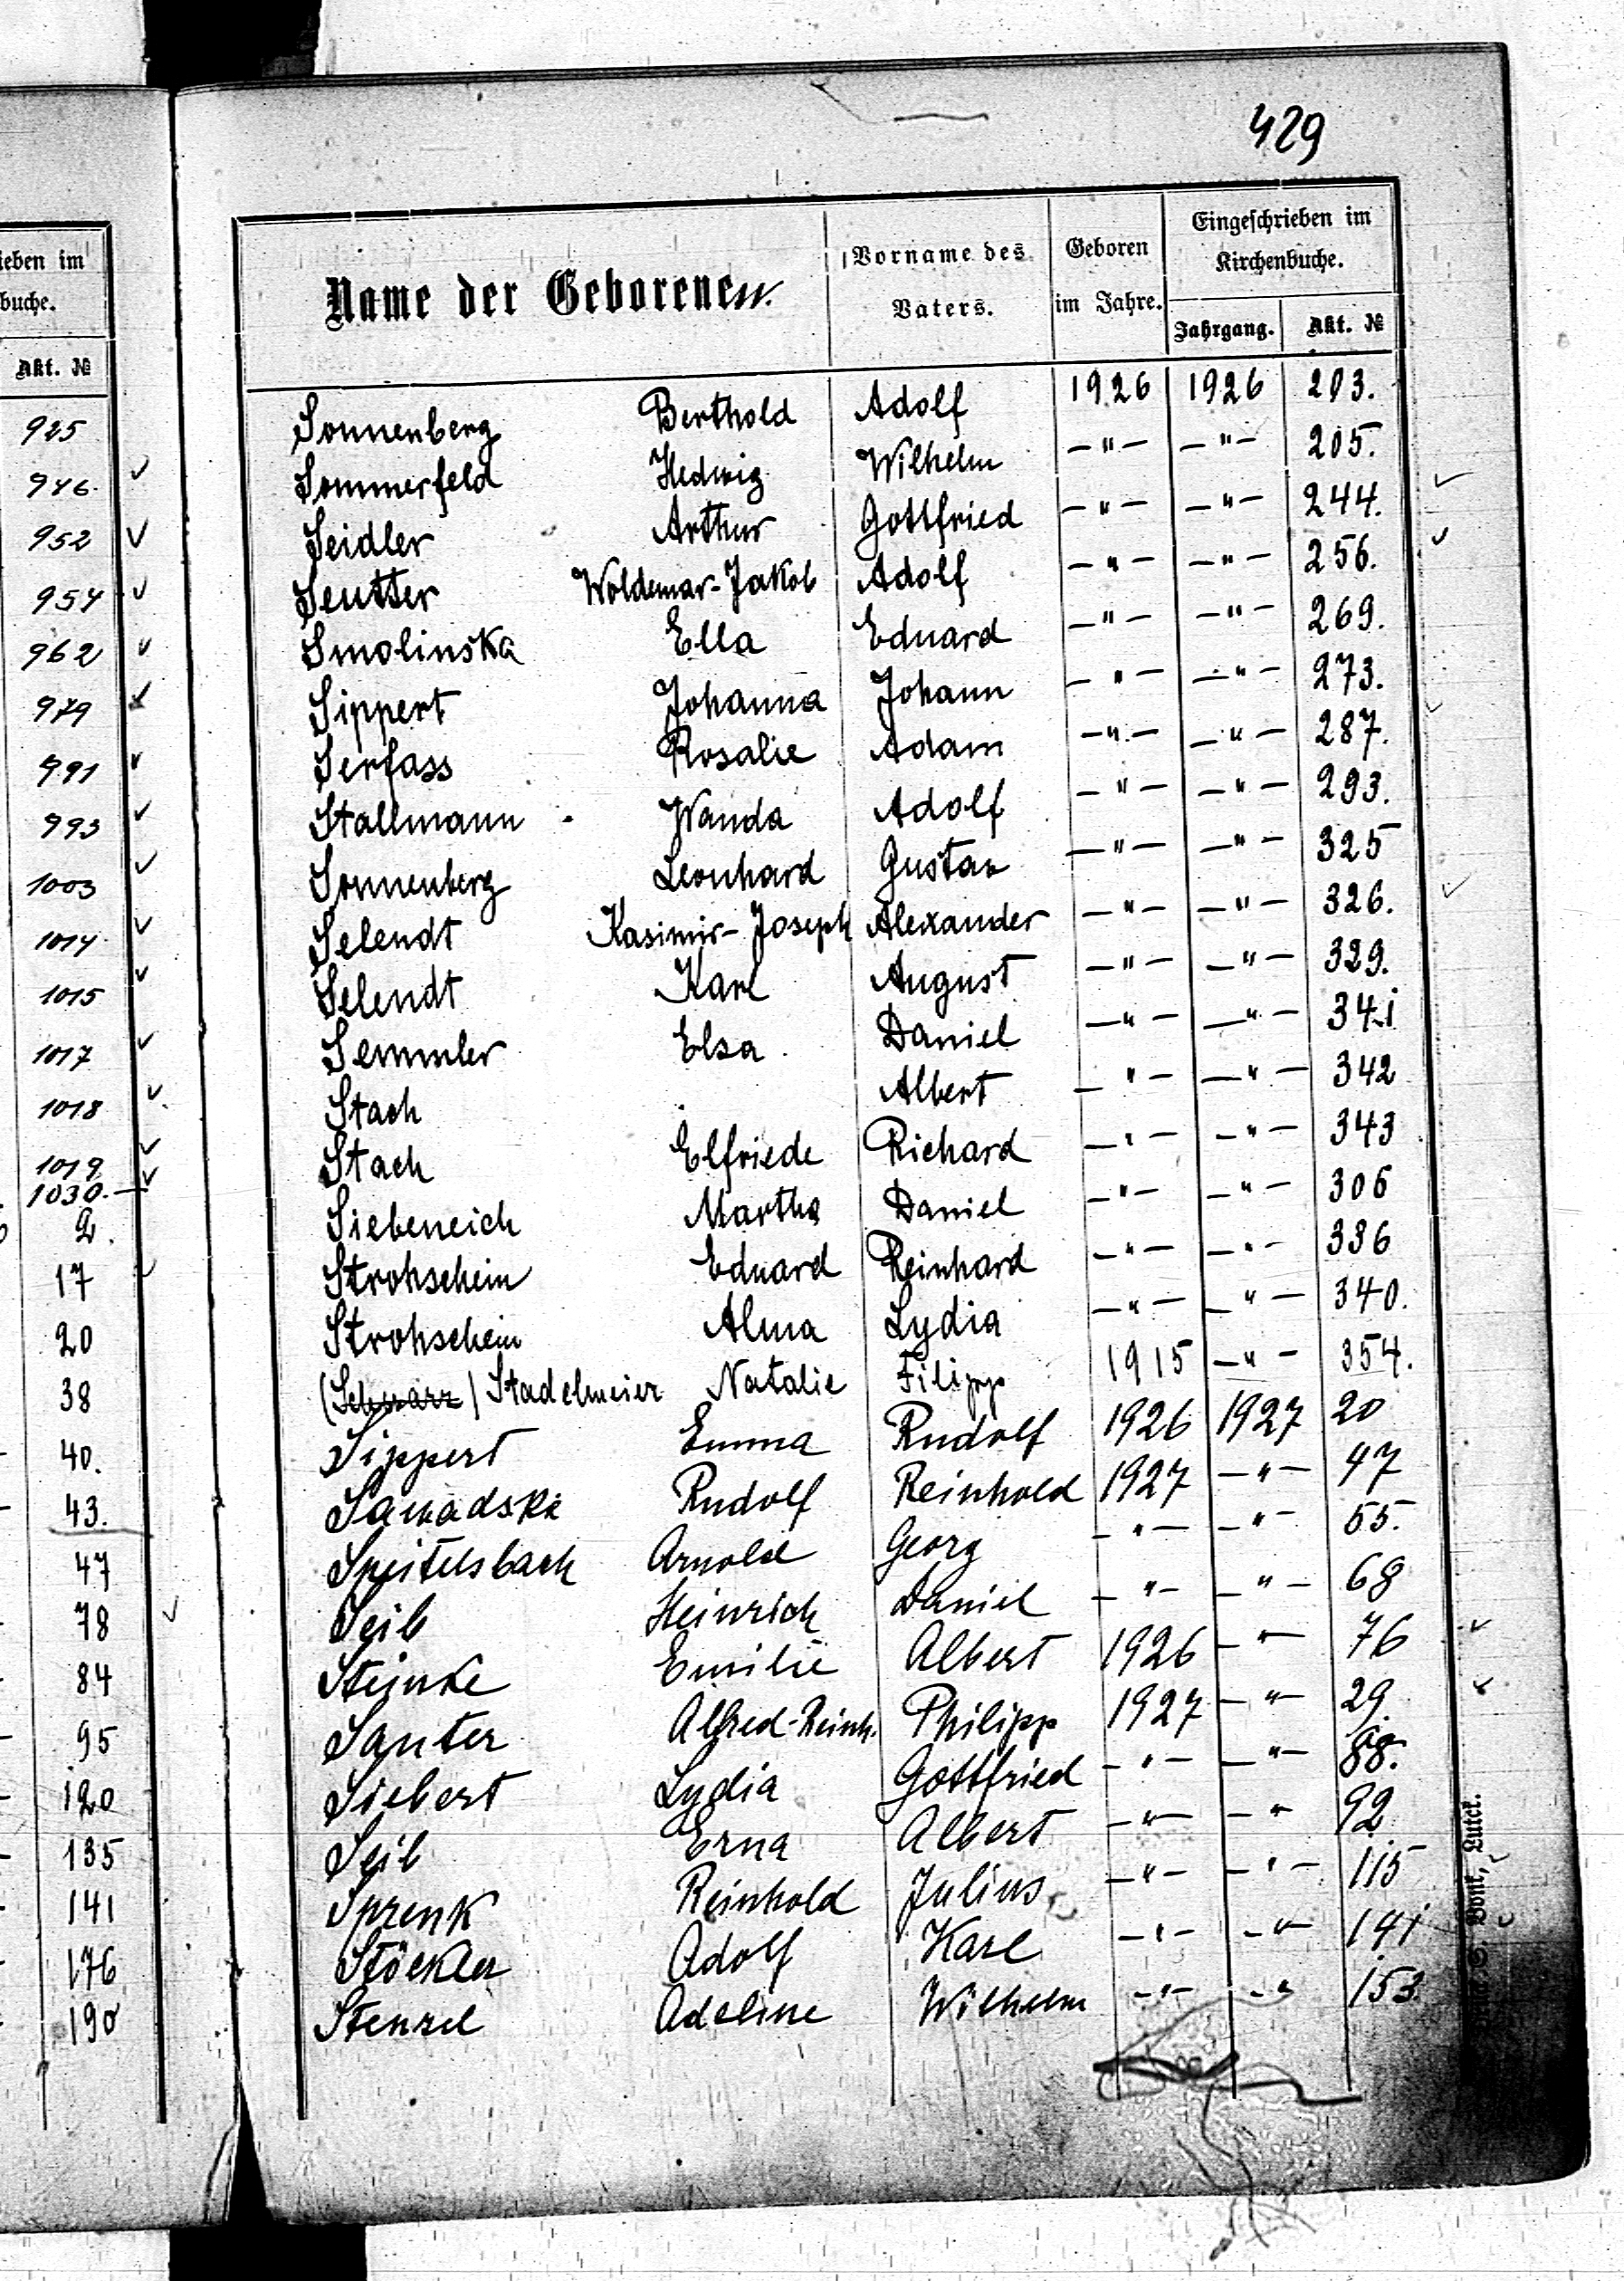 429
ieben im
buche.
Akt. №
925
946.
952
954
962
979
991
993
1003
1014
1015
1017
1018
1019
1030.—
2.
17
20
38
40.
43.
47
78
84
95
120
135
141
176
190
Name der Geborenen.
Vorname des Vaters.
Geboren im Jahre.
Eingeschrieben im Kirchenbuche.
Jahrgang. Akt. №
Sonnenberg Berthold Adolf 1926 1926 203.
Sommerfeld Hedwig Wilhelm —"— —"— 205.
Seidler Arthur Gottfried —"— —"— 244.
Seutter Woldemar-Jakob Adolf —"— —"— 256.
Smolinska Ella Eduard —"— —"— 269.
Sippert Johanna Johann —"— —"— 273.
Serfass Rosalie Adam —"— —"— 287.
Stallmann Wanda Adolf —"— —"— 293.
Sonnenberg Leonhard Gustav —"— —"— 325
Selendt Kasimir-Joseph Alexander —"— —"— 326.
Selendt Karl August —"— —"— 329.
Semmler Elsa Daniel —"— —"— 341
Stach Albert —"— —"— 342
Stach Elfriede Richard —"— —"— 343
Siebeneich Martha Daniel —"— —"— 306
Strohschein Eduard Reinhard —"— —"— 336
Strohschein Alma Lydia —"— —"— 340.
(Schwarz) Stadelmeier Natalie Filipp 1915 —"— 354.
Sippert Emma Rudolf 1926 1927 20
Sawadski Rudolf Reinhold 1927 —"— 47
Speitelsbach Arnold Georg —"— —"— 55.
Seib Heinrich Daniel —"— —"— 68
Steinke Emilie Albert 1926 —"— 76
Sauter Alfred-Reinh. Philipp 1927 —"— 29.
Siebert Lydia Gottfried —"— —"— 88.
Seib Erna Albert —"— —"— 92
Sprenk Reinhold Julius —"— —"— 115
Stöckler Adolf Karl —"— —"— 141
Stenzel Adeline Wilhelm —"— —"— 153.
Luck.